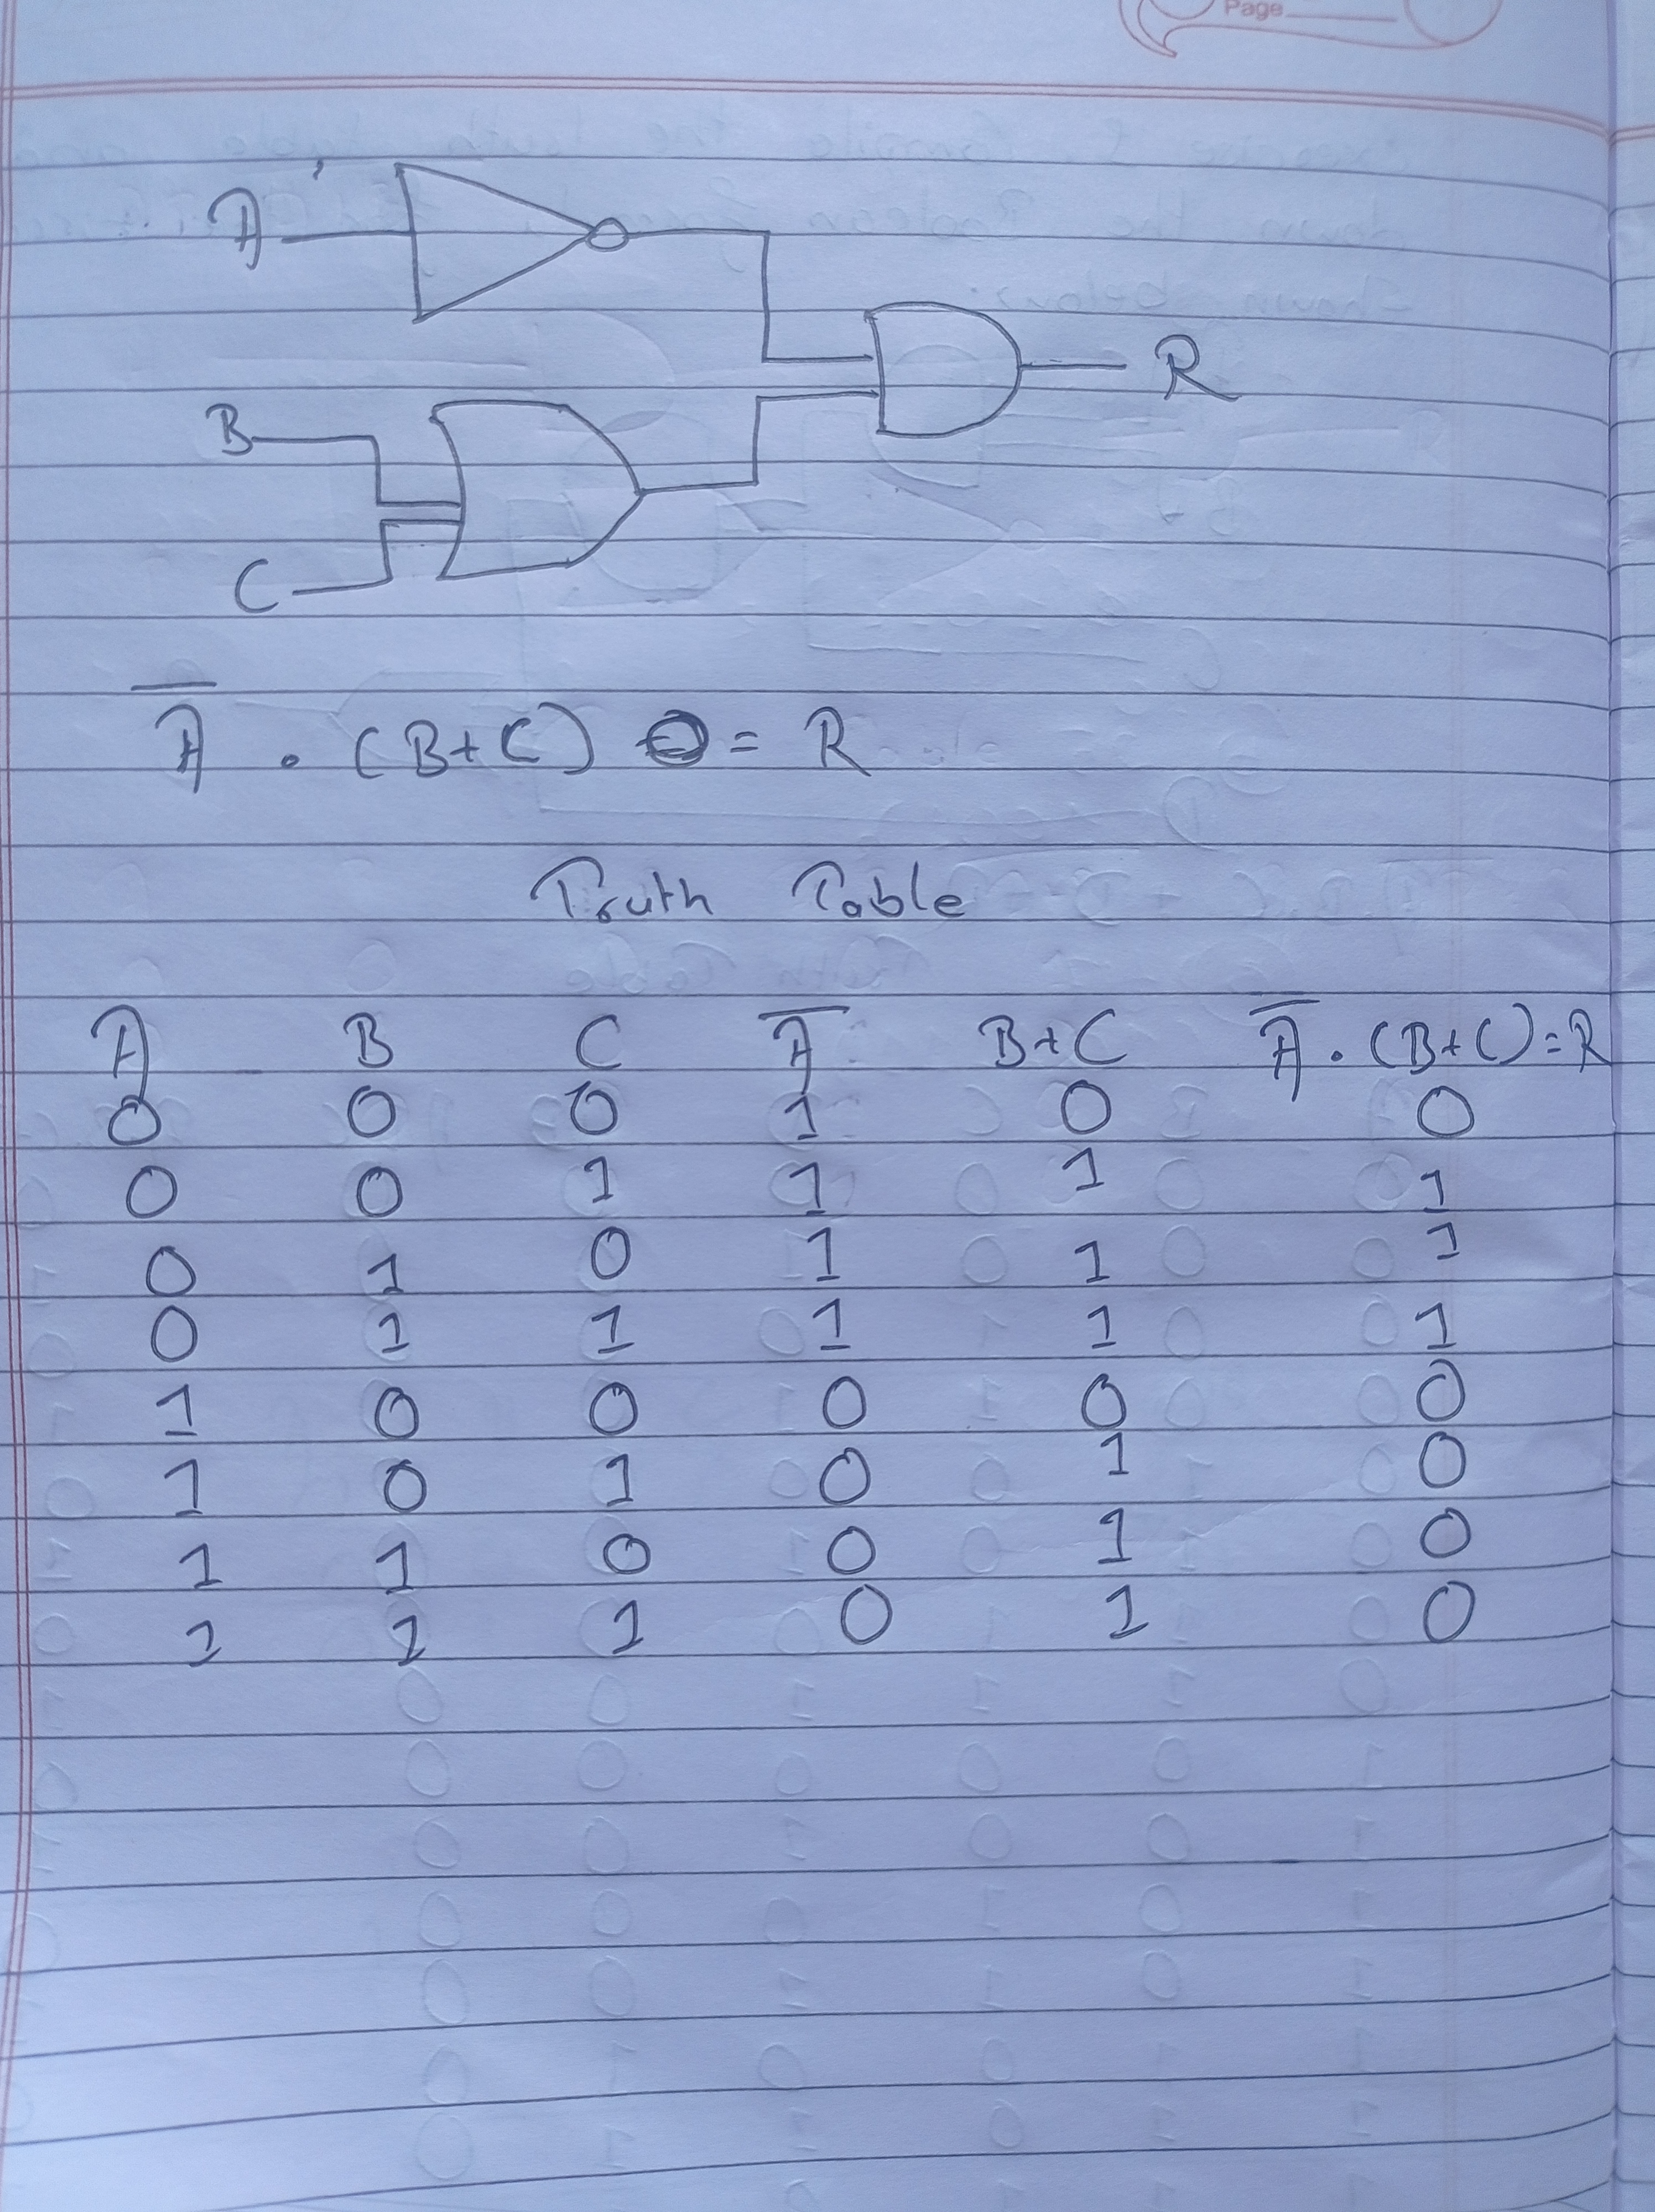 Page
A
R
B
C
A̅ . (B+C) = R
Truth Table
A B C A̅ B+C A̅ . (B+C)=R
0 0 0 1 0 0
0 0 1 1 1 1
0 1 0 1 1 1
0 1 1 1 1 1
1 0 0 0 0 0
1 0 1 0 1 0
1 1 0 0 1 0
1 1 1 0 1 0